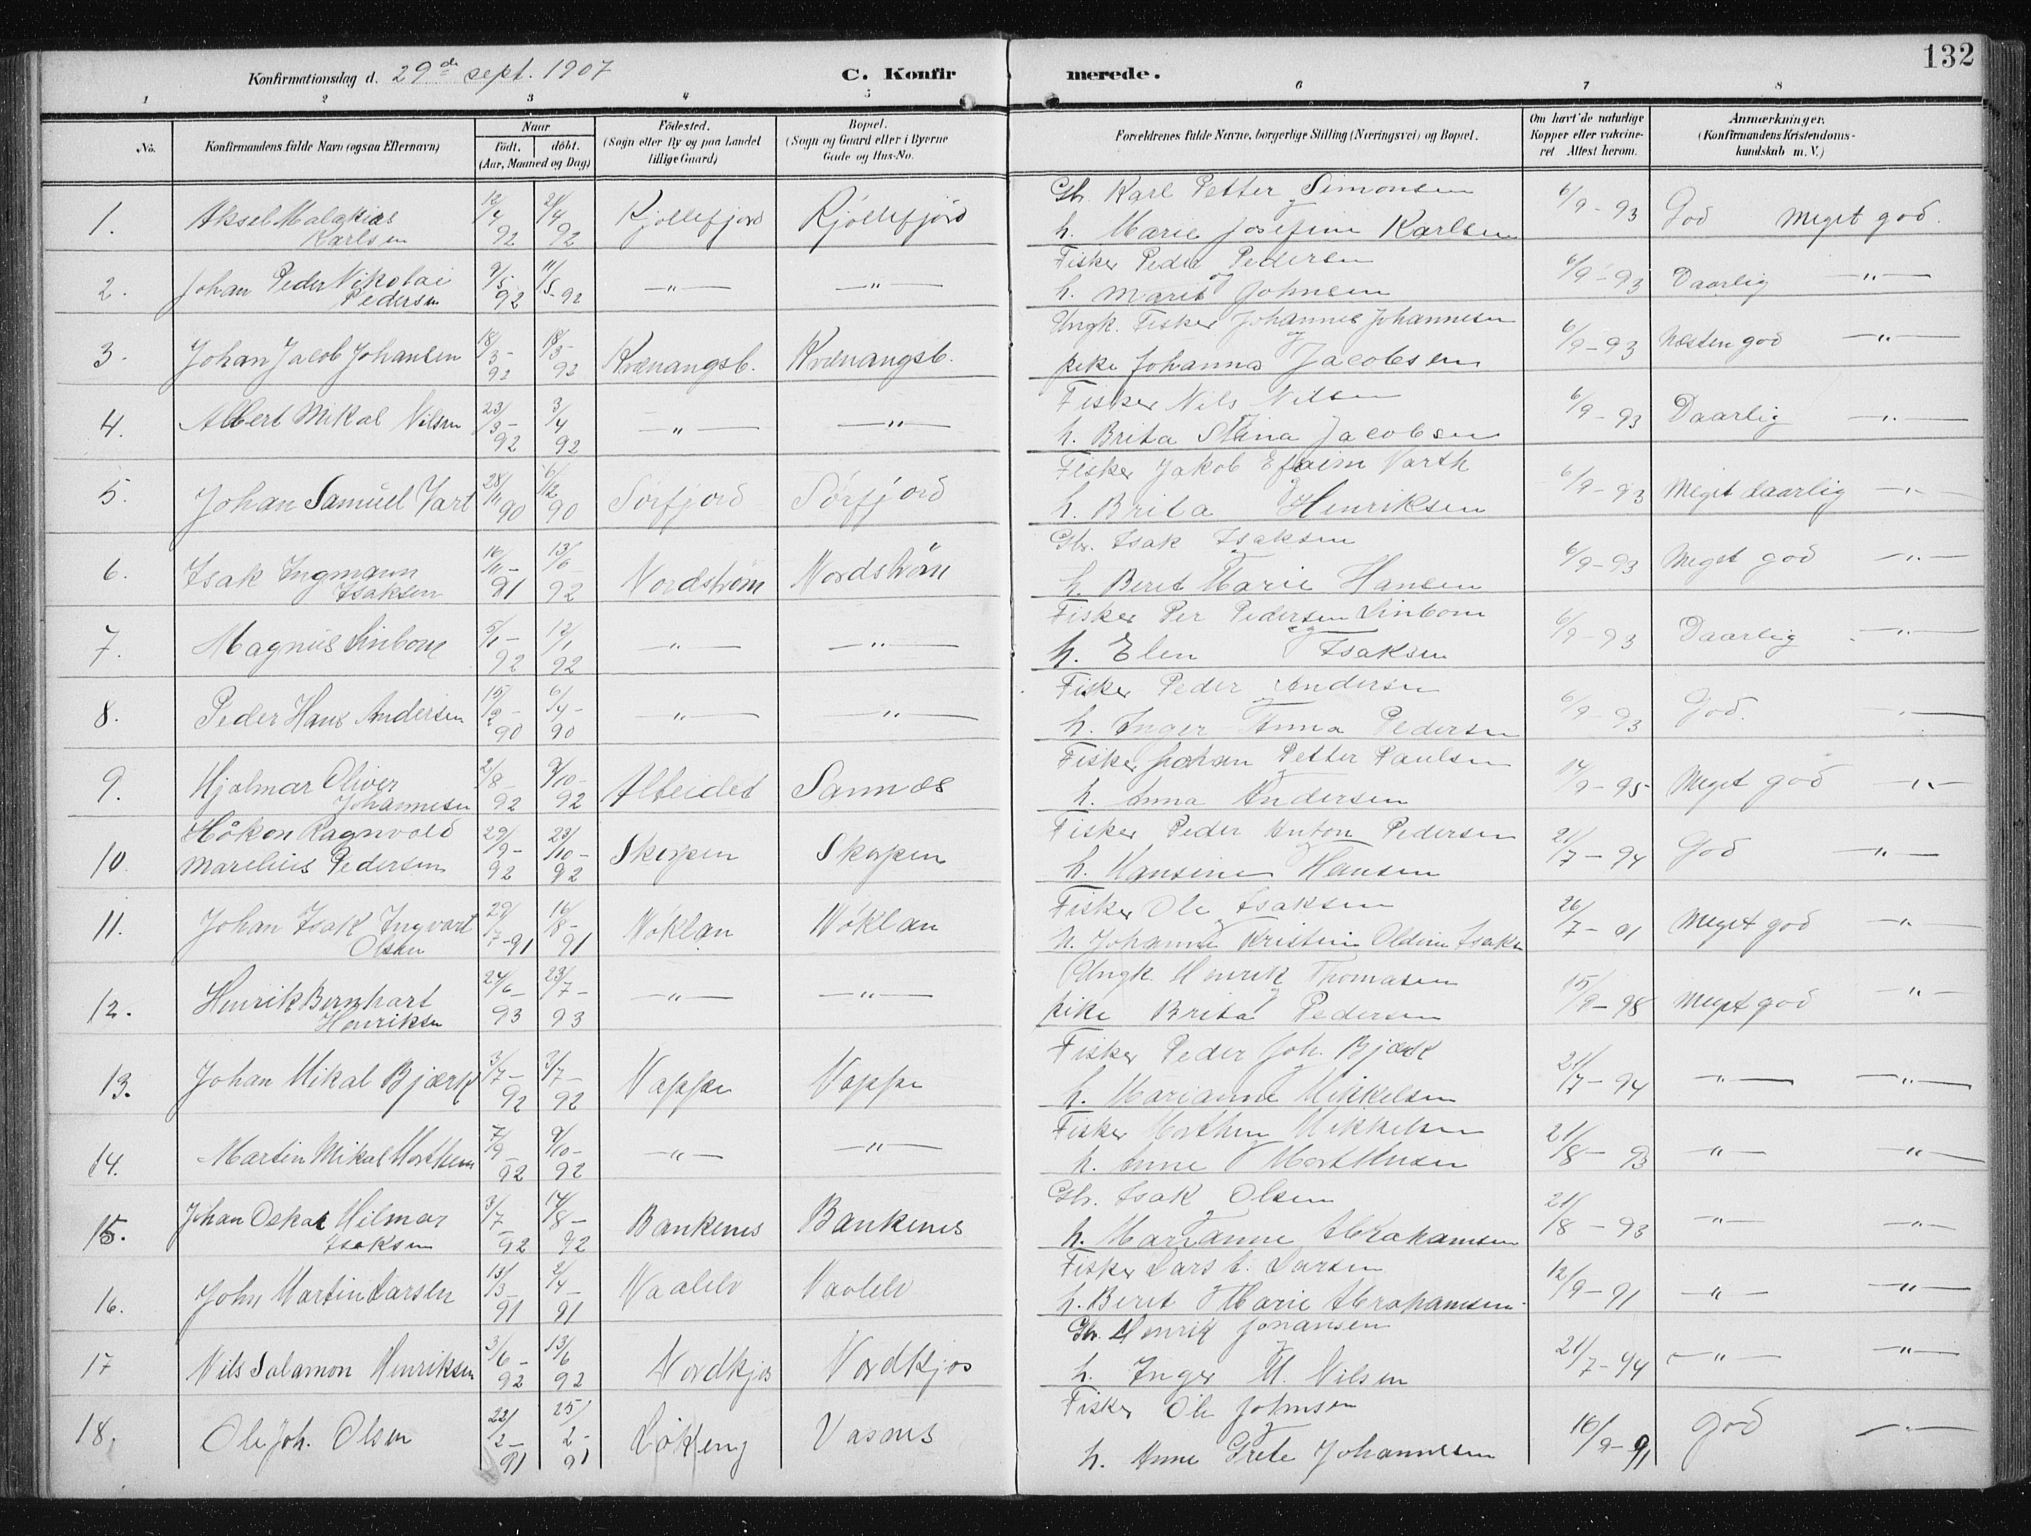 132
Konfirmationsdag d. 29de sept. 1907 C. Konfirmerede.
1 2 3 4 5 6 7 8
No. Konfirmandens fulde Navn (ogsaa Efternavn) Naar født. døbt. (Aar, Maaned og Dag) Fødested. (Sogn eller By og paa Landet tillige Gaard) Bopæl. (Sogn og Gaard eller i Byerne Gade og Hus-No. Forældrenes fulde Navne, borgerlige Stilling (Næringsvei) og Bopæl. Om havt de naturlige Kopper eller vakcineret Attest herom. Anmærkninger. (Konfirmandens Kristendomskundskab m. V.)
1. Aksel Malakias Karlsen 12/4 92 21/4 92 Kjøllefjord Kjøllefjord Gbr. Karl Petter Simonsen
og h. Marie Josefine Karlsen 6/9-93 God Meget god.
2. Johan Peder Nikolai Pedersen 9/5 92 11/5-92 —"— —"— Fisker Peder Pedersen
og h. Marit Johnsen 6/9-93 Daarlig —"—
3. Johan Jacob Johansen 18/3-92 18/3-92 Kvænangsb. Kvænangsb. Ungk. Fisker Johannes Johannesen
og pike Johanna Jacobsen 6/9-93 Næsten god —"—
4. Albert Mikal Nilsen 23/3-92 3/4 92 —"— —"— Fisker Nils Nilsen
h. Brita Stina Jacobsen 6/9-93 Daarlig —"—
5. Johan Samuel Vart 28/11 90 6/12 90 Sørfjord Sørfjord Fisker Jakob Efraim Varth
og h. Brita Henriksen 6/9-93 Meget daarlig —"—
6. Isak Ingmann Isaksen 16/11-91 13/6-92 Nordstrøm Nordstrøm Gbr. Isak Isaksen
og h. Berit Marie Hansen 6/9-93 Meget god —"—
7. Magnus Sinbom 5/1-92 12/1 92 —"— —"— Fisker Per Pedersen Sinbom
og h. Elen Isaksen 6/9-93 Daarlig —"—
8. Peder Hans Andersen 15/2-90 6/4-90 —"— —"— Fisker Peder Andersen
og h. Inger Anna Pedersen 6/9-93 God. —"—
9. Hjalmar Oliver Johannesen 2/8-92 9/10-92 Alteidet Sannæs Fisker Johan Petter Paulsen
og h. Anna Andersen 14/9-95 Meget god —"—
10. Håkon Ragnvald Marelius Pedersen 29/9-92 23/10-92 Skorpen Skorpen Fisker Peder Anton Pedersen
og h. Hansine Hansen 21/7-94 God —"—
11. Johan Isak Ingvart Olsen 29/7-91 16/8-91 Nøklan Nøklan Fisker Ole Isaksen
og h. Johanne Kristine Oldine Isaks 26/7-91 Meget god "
12. Henrik Bernhart Henriksen 24/6-93 23/7-93 —"— —"— Ungk. Henrik Thomasen
og pike Brita Pedersen 15/9-98 Meget god —"—
13. Johan Mikal Bjærk 3/7-92 3/7-92 Nappe Nappe Fisker Peder Joh. Bjærk
h. Marianne Mikkelsen 21/7-94 —"— —"—
14. Martin Mikal 7/9-92 9/10-92 —"— —"— Fisker Morthen Mikkelsen
og h. Anne Morthnsen 21/8-93 —"— —"—
15. Johan Oskar Hilmar Isaksen 3/7-92 14/8-92 Bankenes Bankenes Gbr. Isak Olsen
og h. Marianne Abrahamsen 21/8-93 —"— —"—
16. John Martin Larsen 13/3-91 2/4-91 Vaalelv Vaalelv Fisker Lars L. Larsen
og h. Berit Marie Abrahamsen 12/9-91 —"— —"—
17 Nils Salamon Henriksen 3/6-92 13/6 92 Nordkjos Nordkjos Gbr. Henrik Johansen
og h. Inger M. Nilsen 21/7-94 —"— —"—
18. Ole Joh. Olsen 22/2-91 25/2-91 Løkeng Vasnes Fisker Ole Johnsen
og h. Anne Grete Johannesen 16/9-91 God —"—